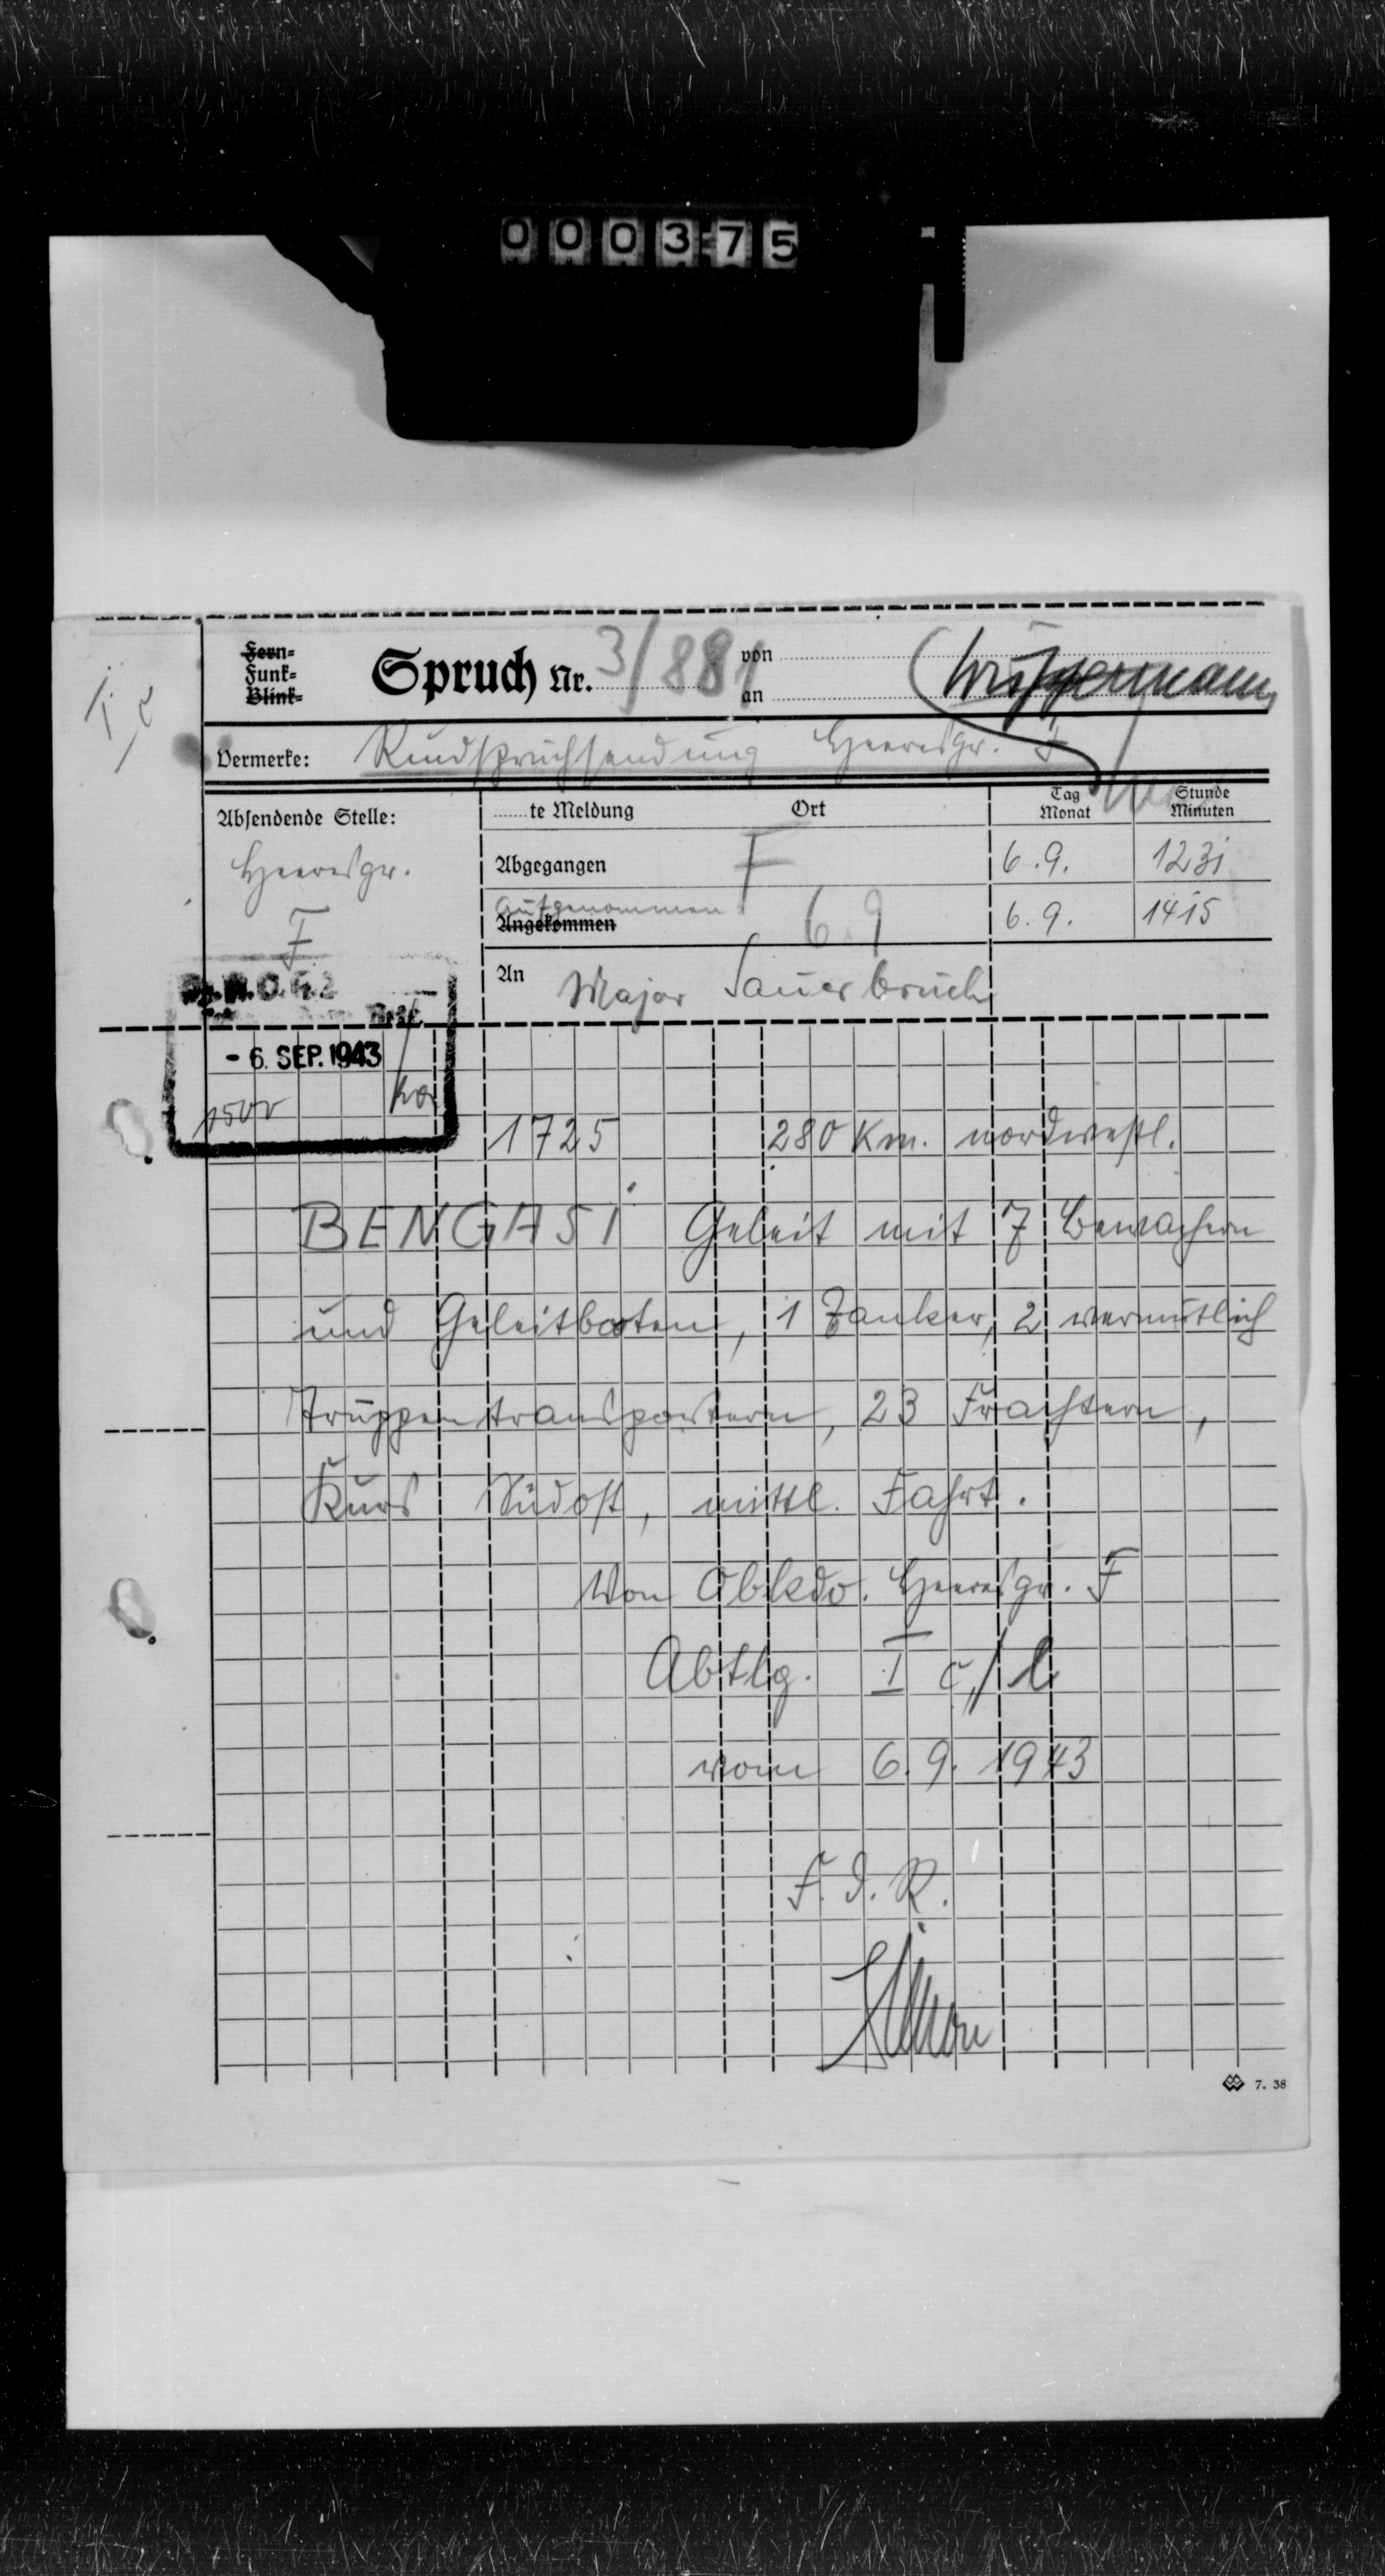 000375
I c
Fern-
Funk-
Blink-
Spruch Nr. 3/881
von
an
Vermerke: Rundspruchsendung Heeresgr. F
Absendende Stelle:
Heeresgr.
F
te Meldung Ort
Tag
Monat
Stunde
Minuten
Abgegangen F 6.9. 1231
Aufgenommen
Angekommen 6.9 6.9. 1415
An Major Sauerbruch
- 6. SEP. 1943
1500
1725 280 Km. nordwestl.
BENGASI Geleit mit 7 Bewachern
und Geleitbooten, 1 Tanker, 2 vermutlich
Truppentransportern, 23 Frachtern,
Kurs Südost, mittl. Fahrt.
Von Obkdo. Heeresgr. F
Abtlg. I c/l
vom 6.9.1943
F.d.R.
7. 38